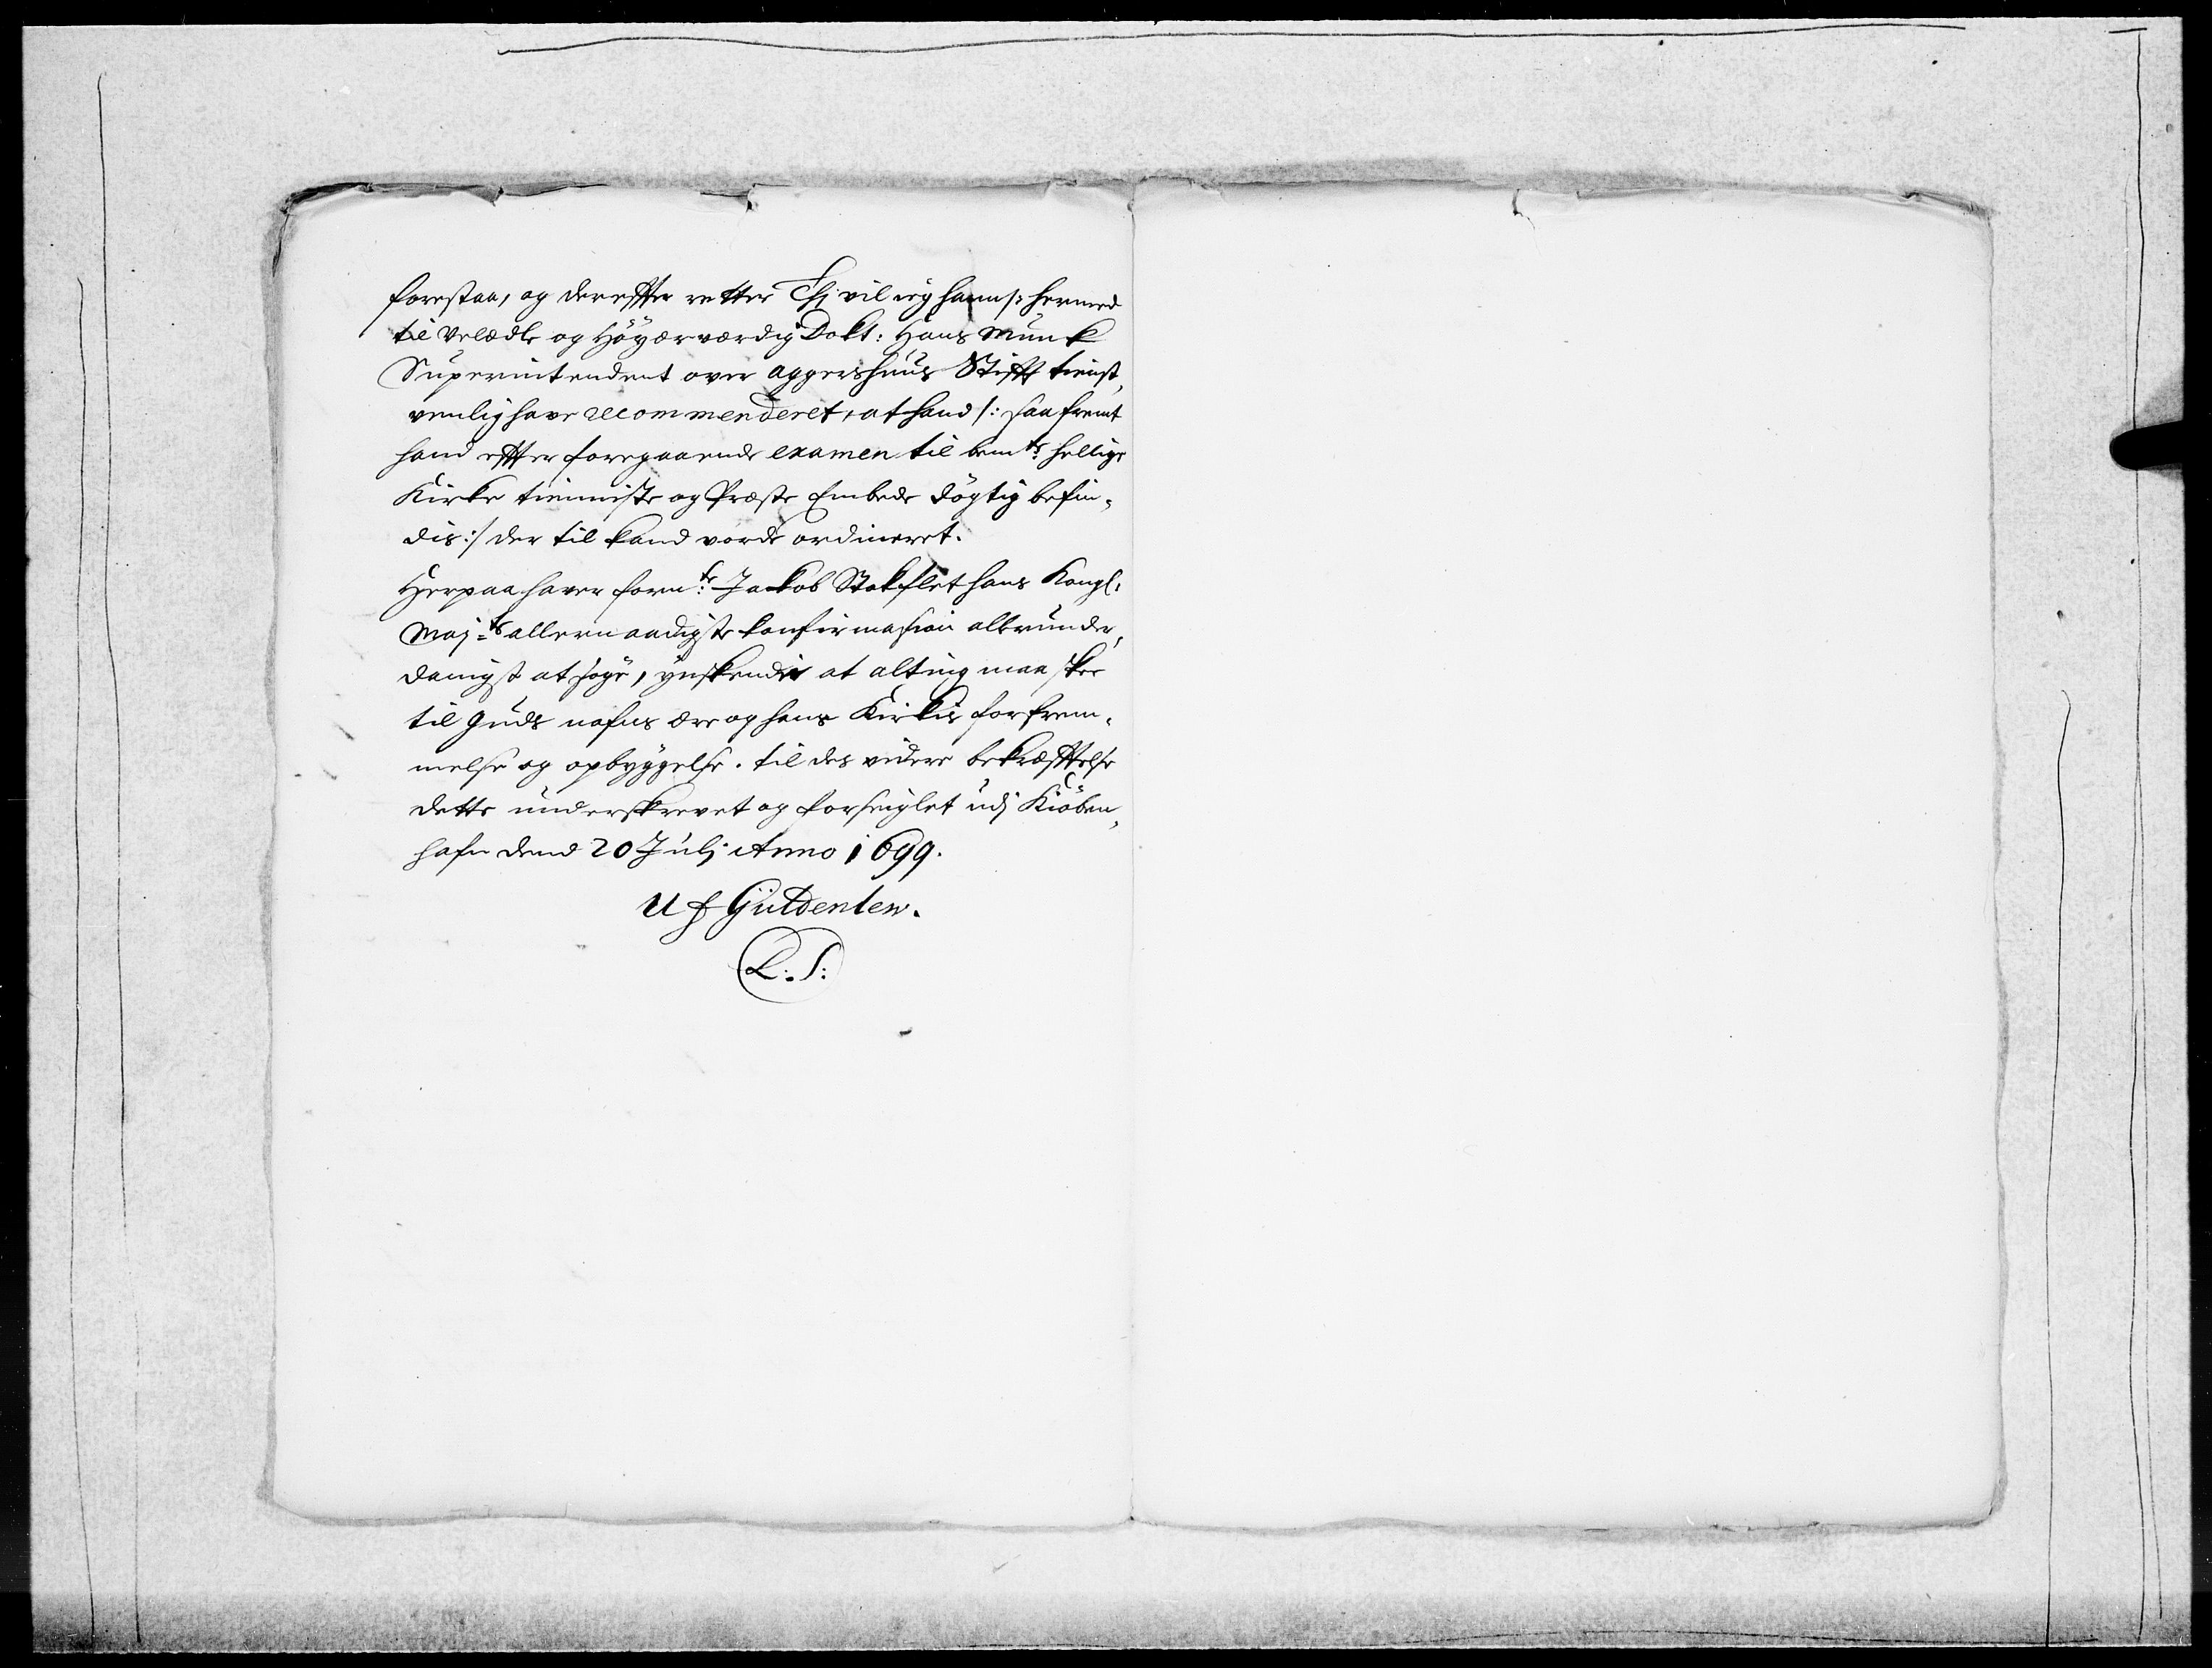 forestaa, og dereffter retter Thj vil ieg hannß hermed
til Velædle og Höyærværdig Dokt: Hans Munk
Superintendent over Aggershuus Stifft tienst,
venlig have recommenderet, at hand /: saa fremt
hand effter foregaaende examen til bemte: hellige
Kirke tienniste og Præste Embede dögtig befin,
dis :/ der til kand vorde ordineret.
Herpaa haver fornte: Jakob Stokflet hans Kongl:
Majts allernaadigste konfirmasion allerunder,
danigst at söge, ynskendis at alting maa skee
til Guds nafns ære og hans Kirkis forfrem,
melse og opbyggelse. til des videre bekræfftelse
dette underskrevet og forseiglet udj Kiöben,
hafn dend 20 Julj Anno 1699.
U f Gÿldenlew.
L: S: